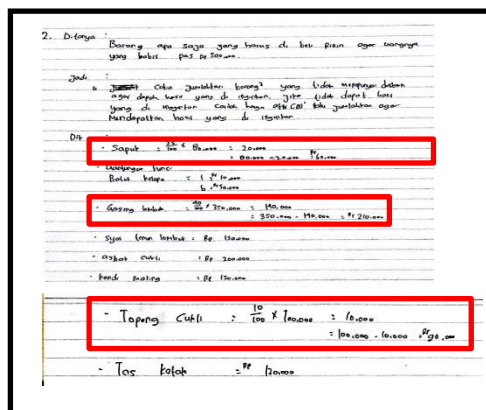 2. Ditanya :
Barang apa saja yang harus di beli agar uangnya
yang habis pas Rp 500.000.
Jadi :
Coba jumlahkan barang² yang tidak mempunyai diskon
agar dapat hasil yang di inginkan, jika tidak dapat hasil
yang di inginkan
lalu jumlahkan agar
Mendapatkan hasil yang di inginkan
Dit :
- Sapuk : 25/100 × 80.000 = 20.000
= 80.000 - 20.000 = Rp 60.000
- Gantungan kunci
Batok kelapa = 1 = Rp 10.000
- Gasing lombok = 40/100 × 350.000 = 140.000
= 350.000 - 140.000 = Rp 210.000
- Syal tenun lombok = Rp 150.000
- asbak cukli = Rp 200.000
- kendi maling = Rp 150.000
- Topeng Cukli : 10/100 × 100.000 = 10.000
= 100.000 - 10.000 = Rp 90.000
- Tas ketak = Rp 120.000